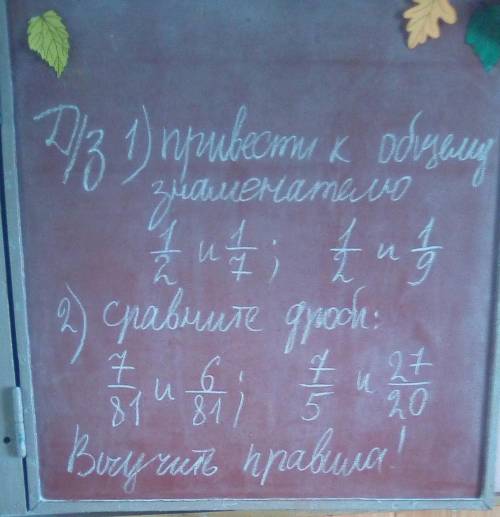 Д/з 1) привести к общему
знаменателю
1/2 и 1/7; 1/2 и 1/9
2) сравните дроби:
7/81 и 6/81; 7/5 и 27/20
Выучить правила!